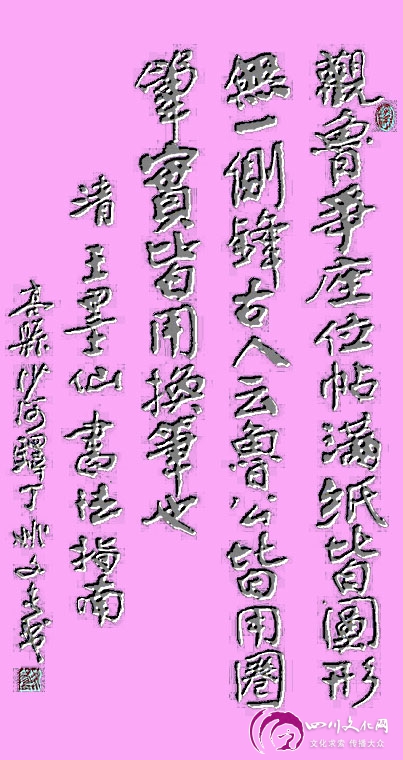 觀魯爭座位帖滿紙皆圓形
無一側鋒古人云魯公皆用圈
筆實皆用換筆也
清王墨仙書法指南
沙河驛丁
四川文化网
文化求索 传播大众